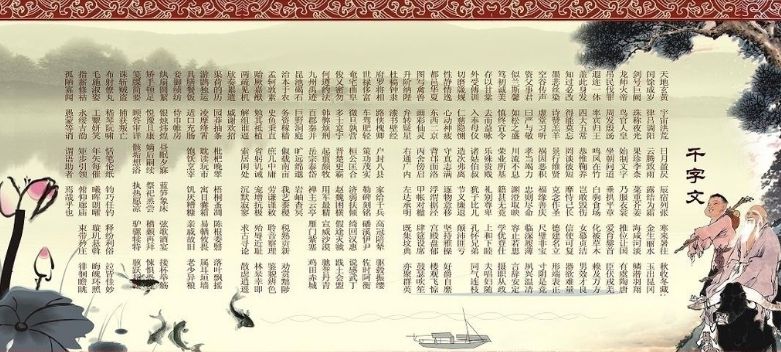 千字文
天地玄黄 宇宙洪荒 日月盈昃 辰宿列张 寒来暑往 秋收冬藏
闰馀成岁 律吕调阳 云腾致雨 露结为霜 金生丽水 玉出昆冈
剑号巨阙 珠称夜光 果珍李柰 菜重芥姜 海咸河淡 鳞潜羽翔
龙师火帝 鸟官人皇 始制文字 乃服衣裳 推位让国 有虞陶唐
吊民伐罪 周发殷汤 坐朝问道 垂拱平章 爱育黎首 臣伏戎羌
遐迩一体 率宾归王 鸣凤在竹 白驹食场 化被草木 赖及万方
盖此身发 四大五常 恭惟鞠养 岂敢毁伤 女慕贞洁 男效才良
知过必改 得能莫忘 罔谈彼短 靡恃己长 信使可复 器欲难量
墨悲丝染 诗赞羔羊 景行维贤 克念作圣 德建名立 形端表正
空谷传声 虚堂习听 祸因恶积 福缘善庆 尺璧非宝 寸阴是竞
资父事君 曰严与敬 孝当竭力 忠则尽命 临深履薄 夙兴温凊
似兰斯馨 如松之盛 川流不息 渊澄取映 容止若思 言辞安定
笃初诚美 慎终宜令 荣业所基 籍甚无竟 学优登仕 摄职从政
存以甘棠 去而益咏 乐殊贵贱 礼别尊卑 上和下睦 夫唱妇随
外受傅训 入奉母仪 诸姑伯叔 犹子比儿 孔怀兄弟 同气连枝
切磨箴规 仁慈隐恻 造次弗离 节义廉退 颠沛匪亏
性静情逸 心动神疲 守真志满 逐物意移 坚持雅操 好爵自縻
都邑华夏 东西二京 背邙面洛 浮渭据泾 宫殿盘郁 楼观飞惊
图写禽兽 画彩仙灵 丙舍傍启 甲帐对楹 肆筵设席 鼓瑟吹笙
升阶纳陛 弁转疑星 右通广内 左达承明 既集坟典 亦聚群英
杜稿钟隶 漆书壁经
府罗将相 路侠槐卿 户封八县 家给千兵 高冠陪辇 驱毂振缨
世禄侈富 车驾肥轻 策功茂实 勒碑刻铭 磻溪伊尹 佐时阿衡
奄宅曲阜 微旦孰营 桓公匡合 济弱扶倾 绮回汉惠 说感武丁
俊乂密勿 多士寔宁 晋楚更霸 赵魏困横 假途灭虢 践土会盟
何遵约法 韩弊烦刑 起翦颇牧 用军最精 宣威沙漠 驰誉丹青
九州禹迹 百郡秦并 岳宗泰岱 禅主云亭 雁门紫塞 鸡田赤城
昆池碣石 巨野洞庭 旷远绵邈 岩岫杳冥
治本于农 务兹稼穑 俶载南亩 我艺黍稷 税熟贡新 劝赏黜陟
孟轲敦素 史鱼秉直 庶几中庸 劳谦谨敕 聆音察理 鉴貌辨色
贻厥嘉猷 勉其祗植 省躬讥诫 宠增抗极 殆辱近耻 林皋幸即
两疏见机 解组谁逼 索居闲处 沉默寂寥 求古寻论 散虑逍遥
欣奏累遣 戚谢欢招
渠荷的历 园莽抽条 枇杷晚翠 梧桐蚤凋 陈根委翳 落叶飘摇
游鹍独运 凌摩绛霄 耽读玩市 寓目囊箱 易輶攸畏 属耳垣墙
具膳餐饭 适口充肠 饱饫烹宰 饥厌糟糠 亲戚故旧 老少异粮
妾御绩纺 侍巾帷房
纨扇圆洁 银烛炜煌 昼眠夕寐 蓝笋象床 弦歌酒宴 接杯举觞
矫手顿足 悦豫且康 嫡后嗣续 祭祀烝尝 稽颡再拜 悚惧恐惶
笺牒简要 顾答审详 骸垢想浴 执热愿凉 驴骡犊特 骇跃超骧
诛斩贼盗 捕获叛亡
布射僚丸 嵇琴阮啸 恬笔伦纸 钧巧任钓 释纷利俗 并皆佳妙
毛施淑姿 工颦妍笑 年矢每催 曦晖朗曜 璇玑悬斡 晦魄环照
指薪修祜 永绥吉劭 矩步引领 俯仰廊庙 束带矜庄 徘徊瞻眺
孤陋寡闻 愚蒙等诮 谓语助者 焉哉乎也